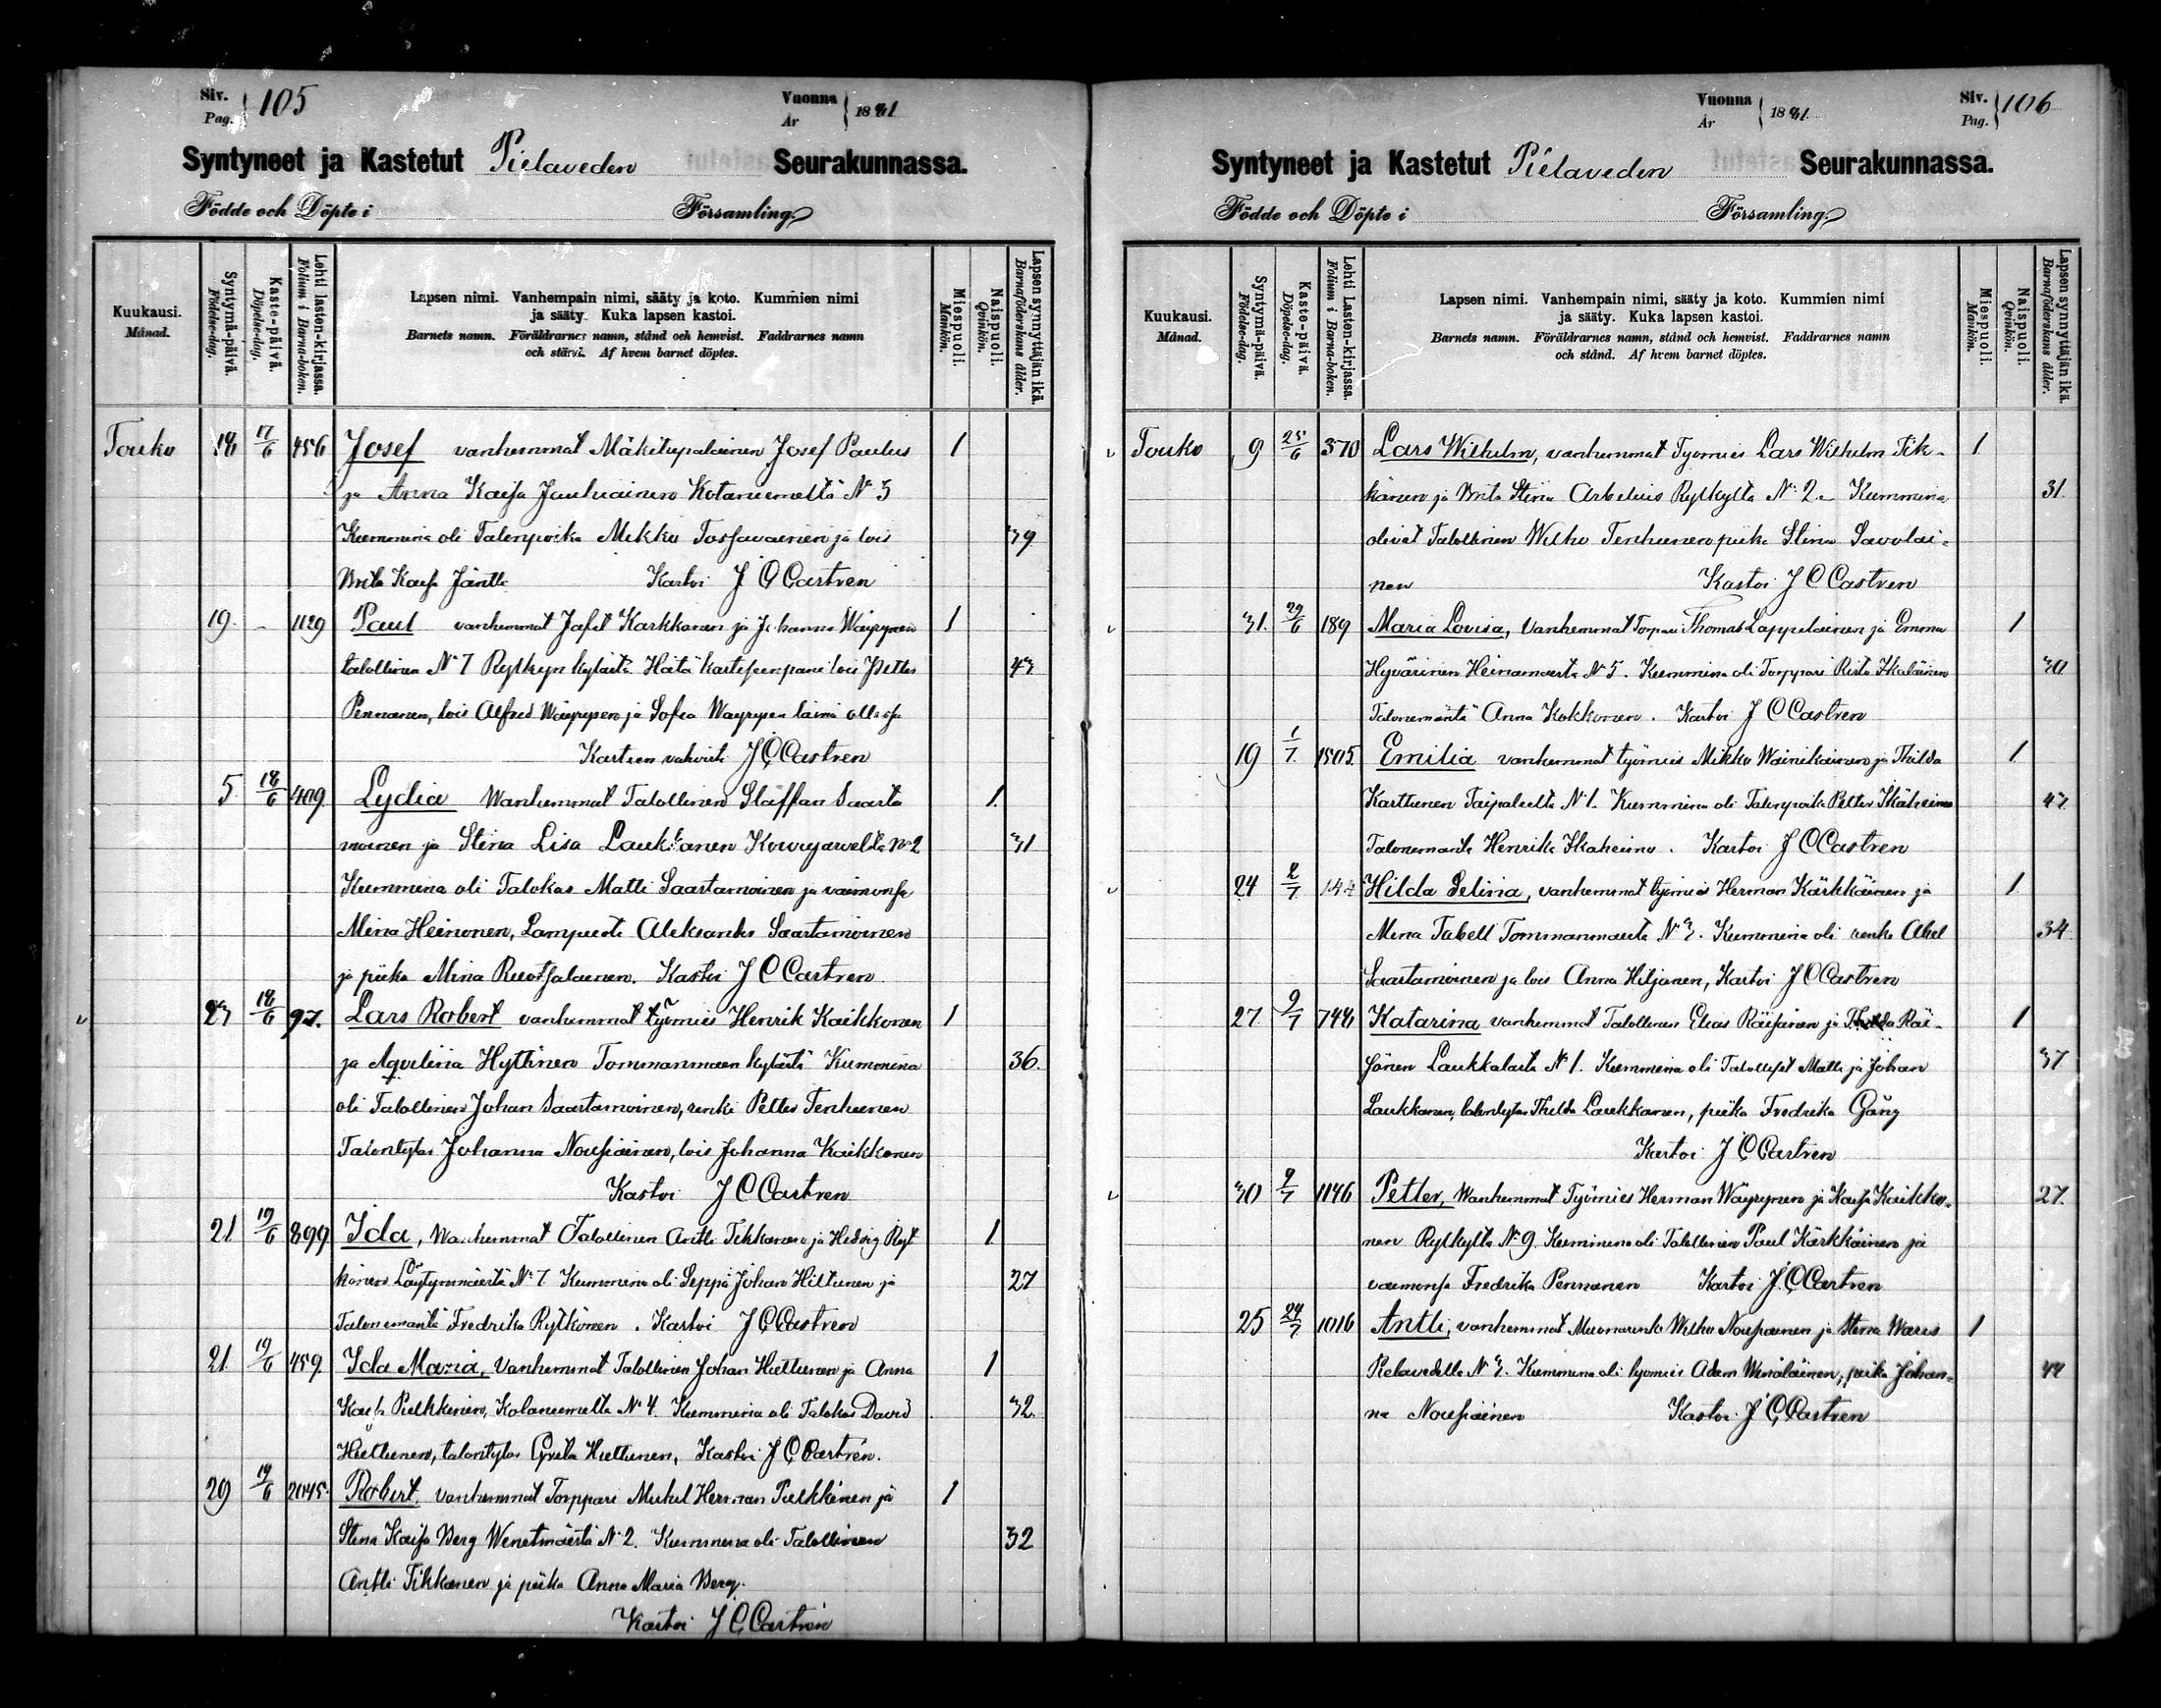 Siv. Pag. 105
Vuonna År 1881
Syntyneet ja Kastetut Pielaveden Seurakunnassa.
Födde och Döpte i Församling.
Kuukausi. Månad.
Syntymä-päivä. Födelse-dag.
Kaste-päivä. Döpelse-dag.
Lehti lasten-kirjassa. Folium i Barna-boken.
Lapsen nimi. Vanhempain nimi, sääty ja koto. Kummien nimi
ja sääty. Kuka lapsen kastoi.
Barnets namn. Föräldrarnes namn, stånd och hemvist. Faddrarnes namn
och stånd. Af hvem barnet döptes.
Miespuoli. Mankön.
Naispuoli. Qvinkön.
Lapsen synnyttäjän ikä. Barnaföderskans ålder.
Touko 18 17/6 456 Josef vanhemmat Mäkitupalainen Josef Paulus 1
ja Anna Kaisa Jauhiainen Kotaniemeltä No 5
Kummina oli Talonpoika Mikko Tossavainen ja lois 39
Brita Kaisa Jäntti Kastoi J C Castren
19 - 1129 Paul vanhemmat Jafet Karkkanen ja Johanna Wäyrynen 1
talollinen No 7 Rytkyn kylästä Hätä kasteen pani lois Petter 43
Pennanen, lois Alfred Wäyrynen ja Sofia Wäyrynen läsnä ollessa
Kasteen vahvisti J C Castren
5 18/6 409 Lydia Wanhemmat Talollinen Staffan Saarta 1
moinen ja Stina Lisa Laukkanen Kowujarvelta No 2 31
Kummina oli Talokas Matti Saastamoinen ja vaimonsa
Mina Heinonen, Lampuoti Aleksander Saastamoinen
ja piika Mina Ruotsalainen. Kastoi J C Castren
23 18/6 97. Lars Robert vanhemmat työmies Henrik Kaikkonen 1
ja Aqvilina Hyttinen Tommanmäen kylästä Kummina 36.
oli Talollinen Johan Saastamoinen, renki Petter Tenhunen
Talontytar Johanna Nousiainen, lois Johanna Kaikkonen
Kastoi J C Castren
21 19/6 899 Ida, Wanhemmat Talollinen Antti Tikkanen ja Hedvig Ryt 1
könen Löytynmäestä No 7 Kummina oli Seppä Johan Hiltunen ja 27
Talonemäntä Fredrika Rytkönen. Kastoi J C Castren
21. 19/6 459. Ida Maria, Vanhemmat Talollinen Johan Huttunen ja Anna 1
Kaisa Pulkkinen, Kotaniemeltä No 4. Kummina oli Talokas David 32.
Huttunen, talontytar Greta Huttunen, Kastoi J C Castrén.
29 19/6 2045. Robert. vanhemmat Torppari Mikel Herman Pulkkinen ja 1
Stina Kaisa Berg Wenetmäestä No 2. Kummina oli Talollinen 32
Antti Tikkanen ja piika Anna Maria Berg.
Kastoi J C Castrén
Vuonna År 1881.
Siv. Pag. 106
Syntyneet ja Kastetut Pielaveden Seurakunnassa.
Födde och Döpte i Församling.
Kuukausi. Månad.
Syntymä-päivä. Födelse-dag.
Kaste-päivä. Döpelse-dag.
Lehti lasten-kirjassa. Folium i Barna-boken.
Lapsen nimi. Vanhempain nimi, sääty ja koto. Kummien nimi
ja sääty. Kuka lapsen kastoi.
Barnets namn. Föräldrarnes namn, stånd och hemvist. Faddrarnes namn
och stånd. Af hvem barnet döptes.
Miespuoli. Mankön.
Naispuoli. Qvinkön.
Lapsen synnyttäjän ikä. Barnaföderskans ålder.
Touko 9 25/6 370 Lars Wilhelm, vanhemmat Tyomies Lars Wilhelm Tik- 1
känen ja Brita Stina Arbelius Rytkyltä No 2. Kummina 31.
olivat Talollinen Wilho Tenhunen piika Stina Savolai-
nen Kastoi J C Castren
31. 29/6 189 Maria Lovisa, Vanhemmat Torpari Thomas Lappalainen ja Emma 1
Hyvärinen Heinamäestä No 5. Kummina oli Torppari Risto Ikäläinen 30
Talonemäntä Anna Kokkonen. Kastoi J C Castren
19 1/7 1505. Emilia vanhemmat työmies Mikko Wainikainen ja Thilda 1
Karttunen Taipaleelta No 1. Kummina oli Talonpoika Petter Ikäheimo 43
Talonemanta Henrika Ikaheimo. Kastoi J C Castren
24 2/7 144 Hilda Selina, vanhemmat työmies Herman Kärkkäinen ja 1
Mina Tabell Tommanmäestä No 3. Kummina oli renki Abel 34
Saastamoinen ja lois Anna Hiljanen, Kastoi J C Castren
27 9/7 744 Katarina vanhemmat Talollinen Elias Räisänen ja Thilda Räi- 1
sänen Laukkalasta No 1. Kummina oli Talolliset Matti ja Johan 37
Laukkanen, talontytar Thilda Laukkanen, piika Fredrika Gång
Kastoi J C Castren
30 9/7 1146 Petter, Wanhemmat Työmies Herman Wäyrynen ja Kaisa Kaikko- 27.
nen Rytkyltä No 9. Kummina oli Talollinen Paul Kärkkäinen ja
vaimonsa Fredrika Pennanen Kastoi J. C Castren
25 24/7 1016 Antti, vanhemmat Muonarenki Wilho Nousiainen ja Stina Wares 1
Pielavedeltä No 3. Kummina oli työmies Adam Wenäläinen, piika Johan- 44
na Nousiainen Kastoi J C Castren